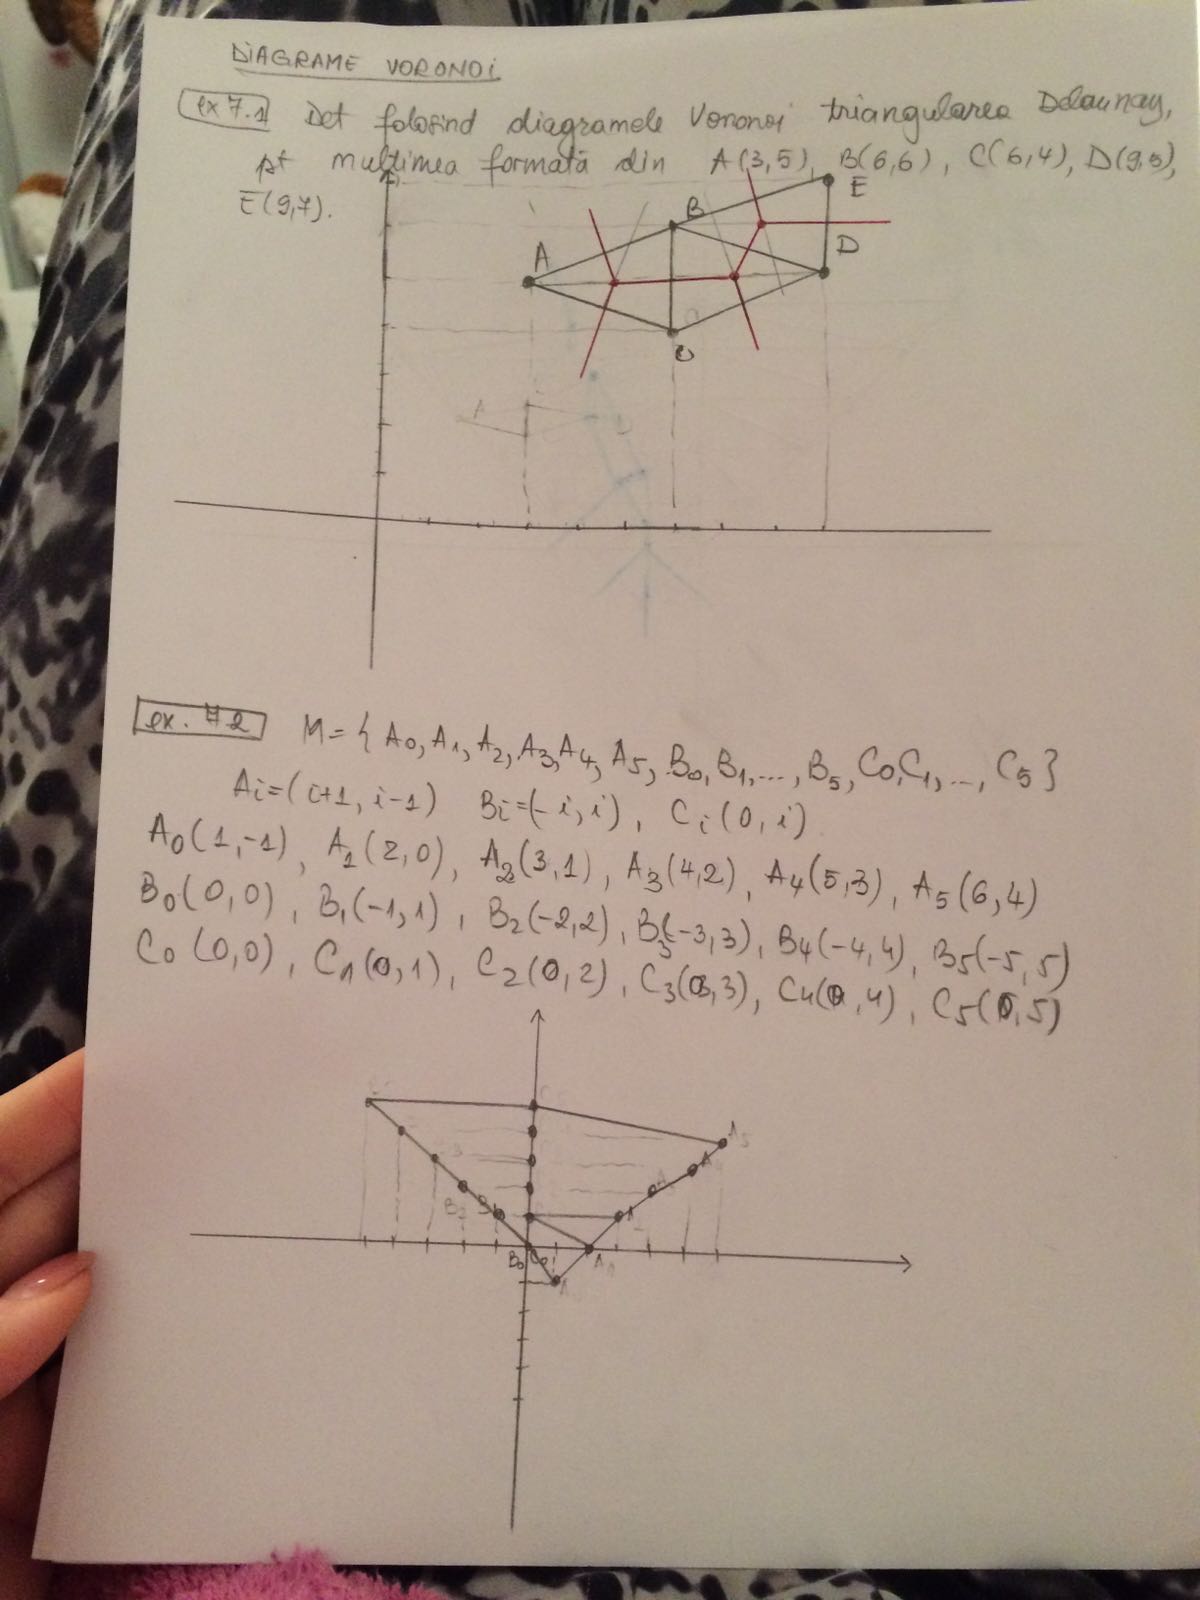 DIAGRAME VORONOI
ex 7.1 Det folosind diagramele Voronoi triangularea Delaunay,
pt mulțimea formată din A(3,5), B(6,6), C(6,4), D(9,5),
E(9,7).
E
B
D
A
C
ex. 7.2 M={A0, A1, A2, A3, A4, A5, B0, B1, ..., B5, C0, C1, ..., C5}
Ai=(i+1, i-1) Bi=(-i, i), Ci(0, i)
A0(1,-1), A1(2,0), A2(3,1), A3(4,2), A4(5,3), A5(6,4)
B0(0,0), B1(-1,1), B2(-2,2), B3(-3,3), B4(-4,4), B5(-5,5)
C0(0,0), C1(0,1), C2(0,2), C3(0,3), C4(0,4), C5(0,5)
A5
B2
B0 C0 A1